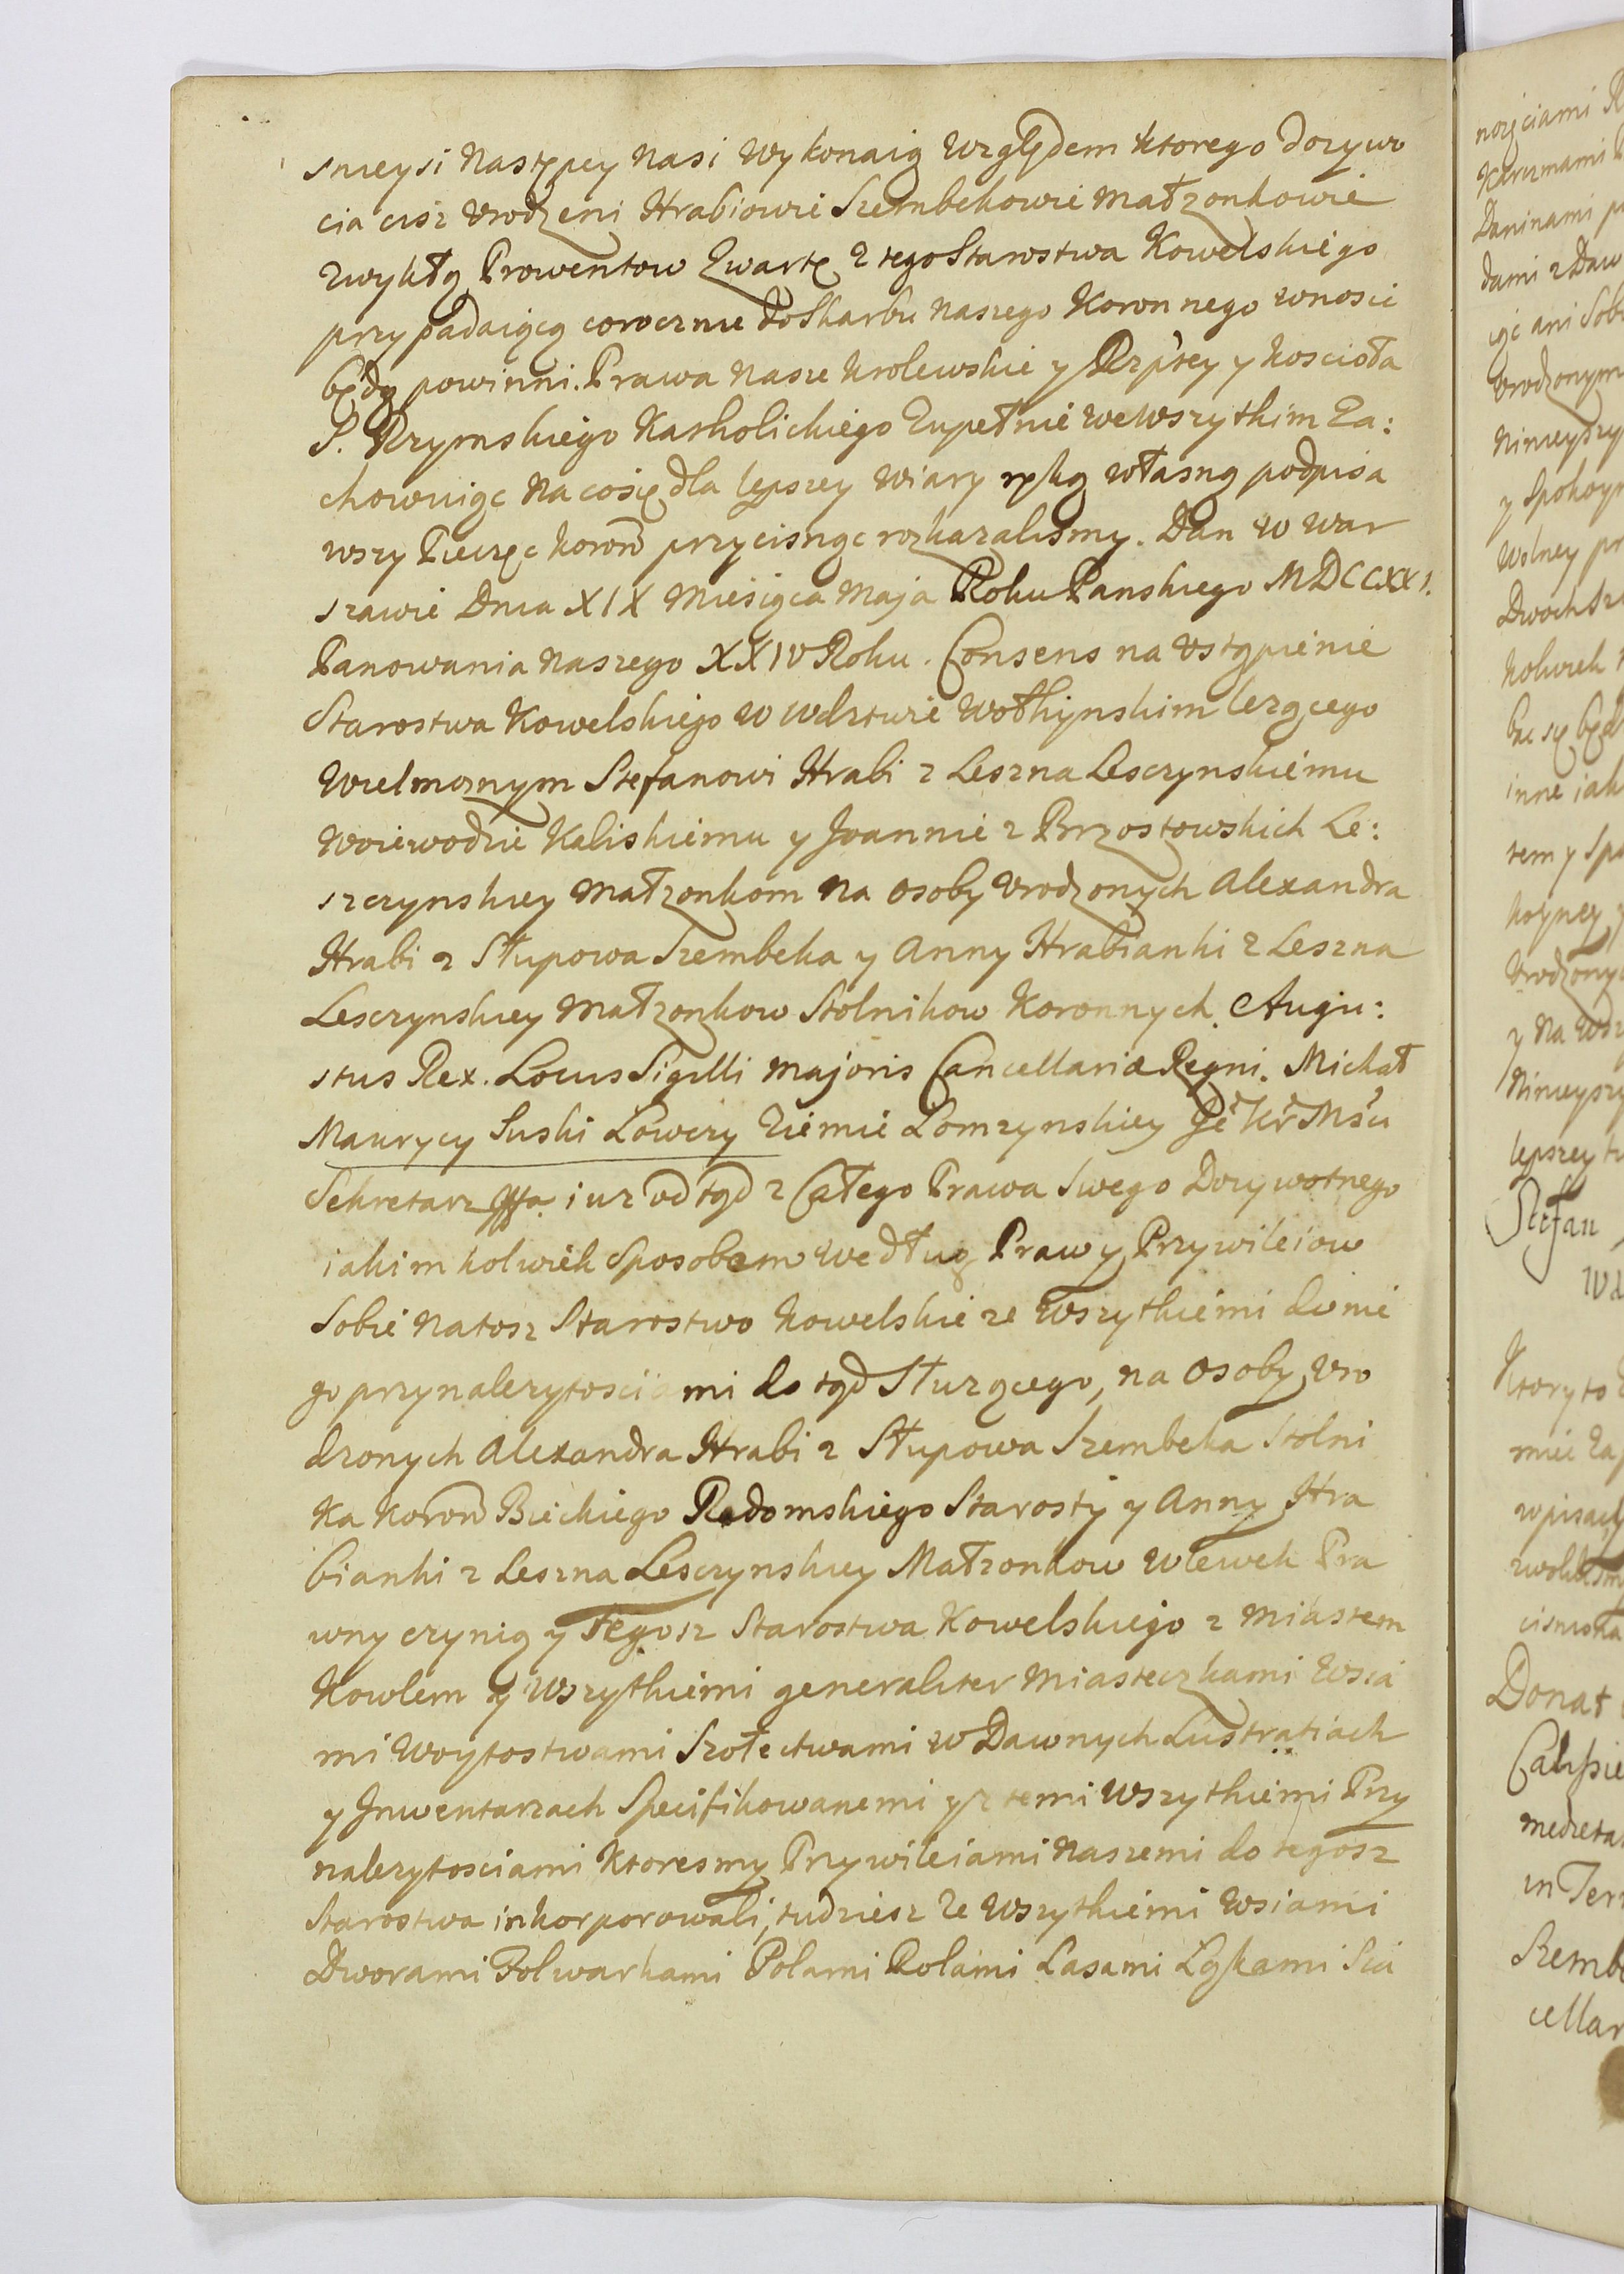 snieysi Następcy Nasi wykonaią względem ktorego dozywo
cia cisz Vrodzeni Hrabiowie Szembekowie małzonkowie
zwykłą Prowentow Kwartę z tego Starostwa Kowelskiego
przypadaiącą corocznie do Skarbu Naszego Koronnego wnosic
będą powinni. Prawa Nasze Krolewskie y Rzptey y Koscioła
S. Rzymskiego Katholickiego Zupełnie we Wszytkim Za:
chowuiąc Na co się dla lepszey wiary ręką własną podpisa
wszy Pieczęc koron przycisnąc rozkazalismy. Dan w War
szawie Dnia XIX Miesiąca Maja Roku Panskiego MDCCXXI.
Panowania Naszego XXIV Roku. Consens na Vstąpienie
Starostwa Kowelskiego w Wdztwie Wołhynskim lezącego
Wielmoznym Stefanowi Hrabi z Leszna Lesczynskiemu
Woiewodzie Kaliskiemu y Joannie z Brzostowskich Le:
szczynskiey Małzonkom na osoby Vrodzonych Alexandra
Hrabi z Słupowa Szembeka y Anny Hrabianki z Leszna
Lesczynskiey Małzonkow Stolnikow Koronnych. Augu:
stus Rex. Locus Sigilli majoris Cancellariæ Regni. Michał
Maurycy Suski Łowczy Ziemie Łomzynskiey Je Kr Msci
Sekretarz iuz od tąd z Całego Prawa Swego Dozywotnego
iakimkolwiek Sposobem według Praw y Przywileiow
Sobie Natosz Starostwo Kowelskie ze Wszytkiemi do nie
go przynalezytosciami do tąd Słuzącego, na osoby Vro
dzonych Alexandra Hrabi z Słupowa Szembeka Stolni
ka Koron Bieckiego Radomskiego Starosty y Anny Hra
bianki z Leszna Lesczynskiey Małzonkow wlewek Pra
wny czynią y Tegosz Starostwa Kowelskiego z Miastem
Kowlem y Wszytkiemi generaliter Miasteczkami Wsia
mi Woytostwami Szołectwami w Dawnych Lustratiach
y Jnwentarzach Specifikowanemi y z temi Wszytkiemi Przy
nalezytosciami Ktoresmy Przywileiami Naszemi do tegosz
Starostwa inkorporowali, tudziesz Ze Wszytkiemi Wsiami
Dworami Folwarkami Polami Rolami Lasami Ląkami Sia